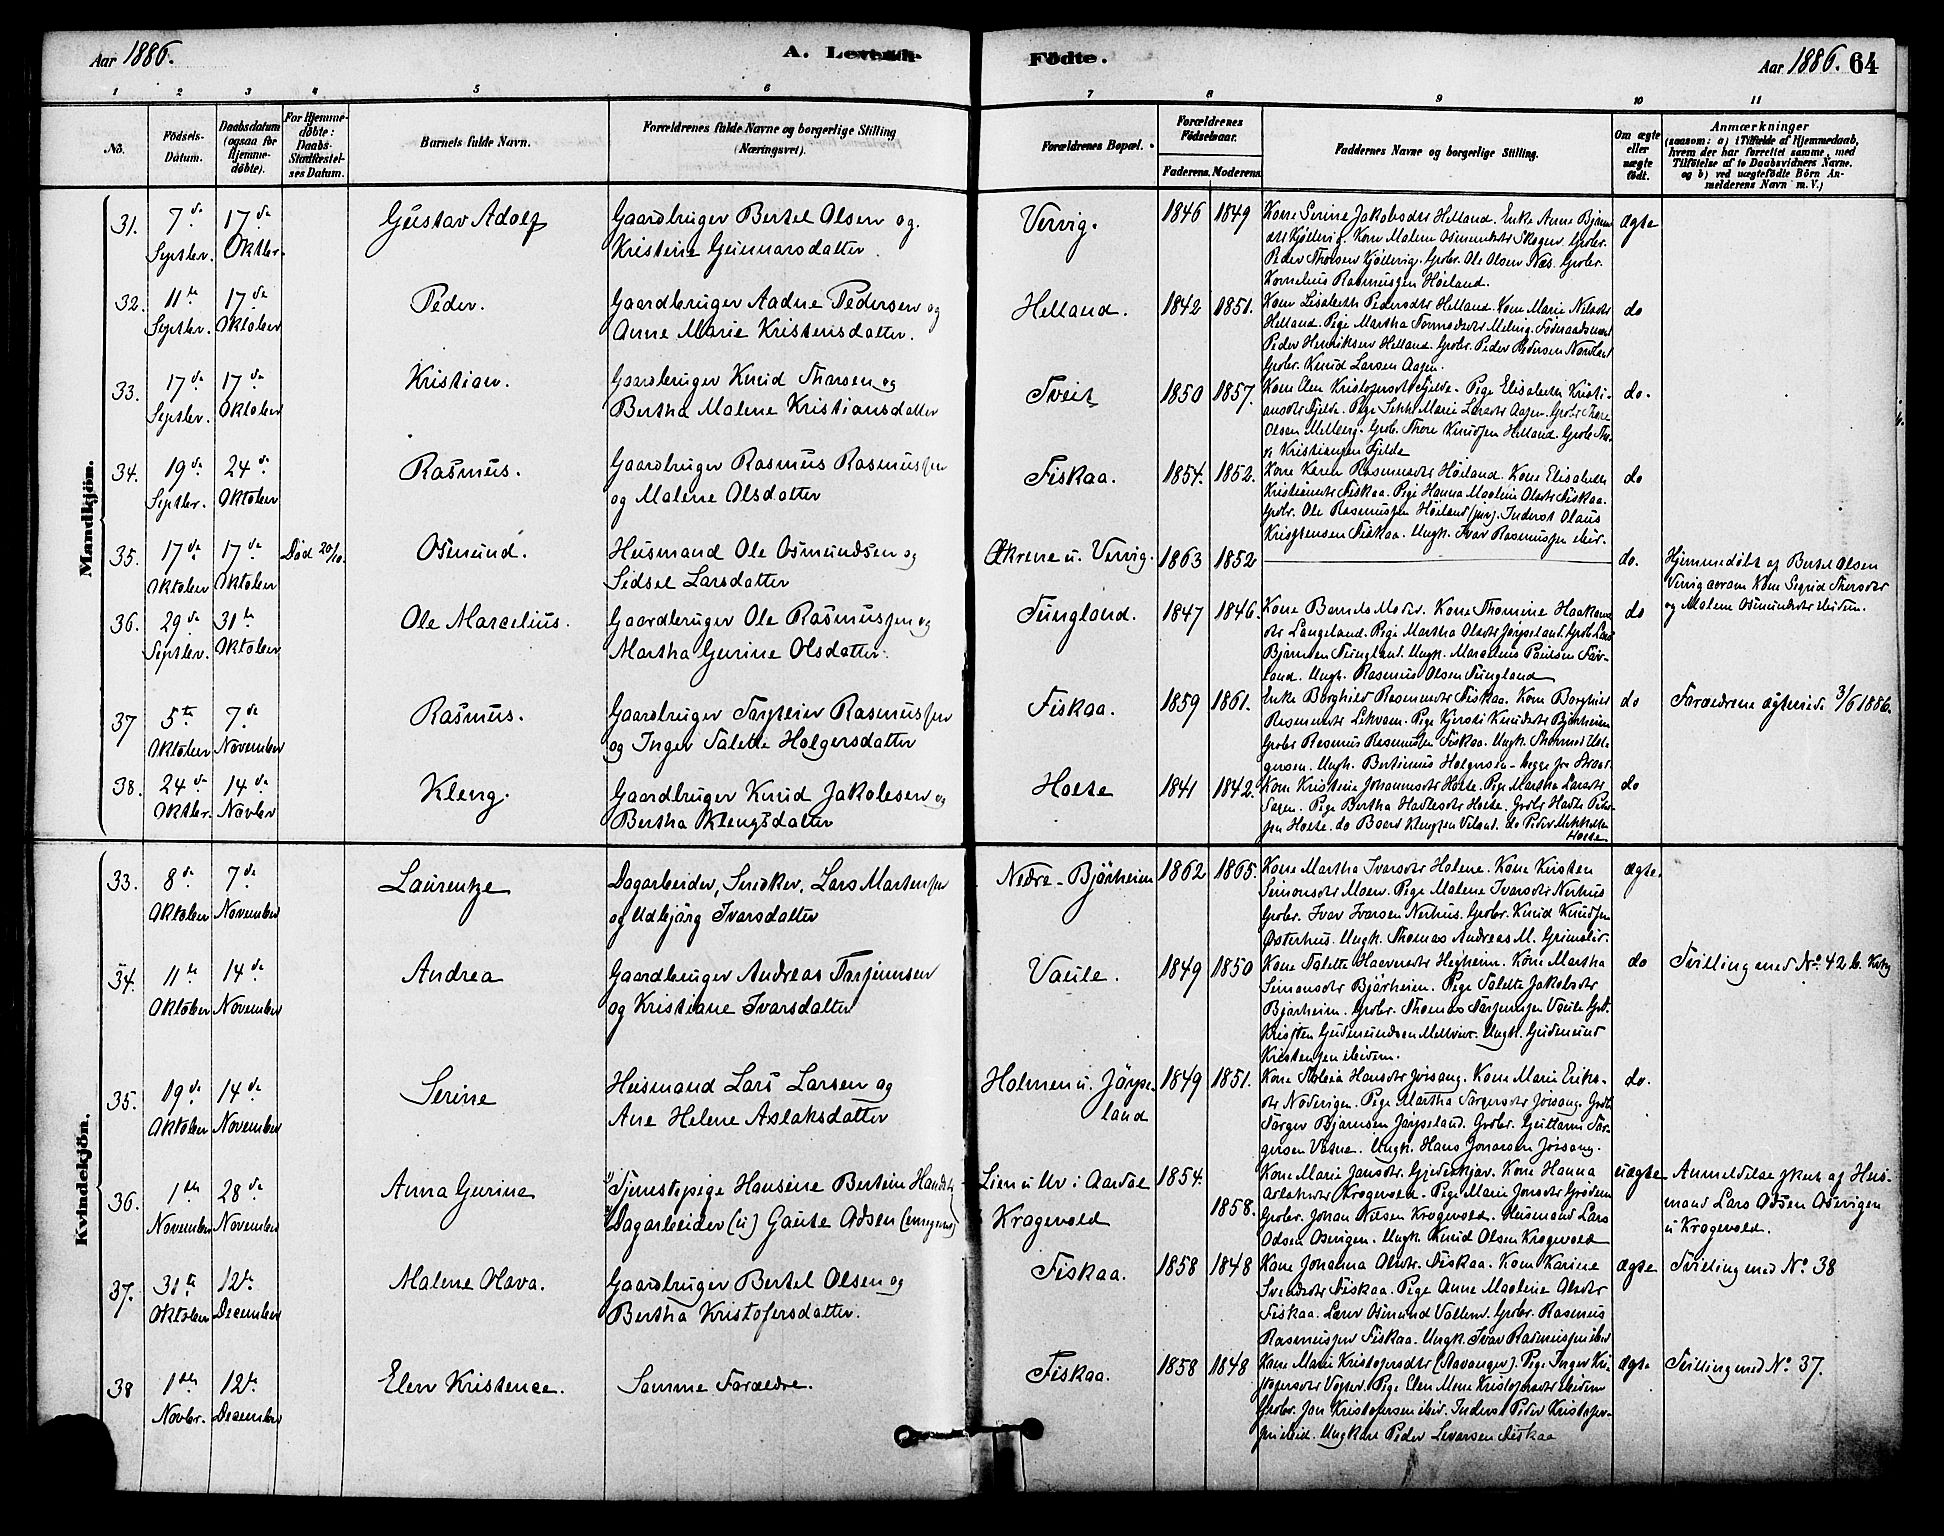 Aar 1886.
A. Levende
Födte.
Aar 1886. 64
1 2 3 4 5 6 7 8 9 10 11
No.
Födsels-Datum.
Daabsdatum (ogsaa for Hjemme-döbte).
For Hjemme-döbte: Daabs-Stadfæstel-ses Datum.
Barnets fulde Navn.
Forældrenes fulde Navne og borgerlige Stilling (Næringsvei).
Forældrenes Bopæl.
Forældrenes Födselsaar.
Faderens. Moderens.
Faddernes Navne og borgerlige Stilling.
Om ægte eller uægte födt.
Anmærkninger
(saasom: a) i Tilfælde af Hjemmedaab,
hvem der har forrettet samme, med
Tilföielse af to Daabsvidners Navne.
og b) ved uægtefödte Börn An-
melderens Navn m. V.)
Mandkjön.
31. 7de Septbr. 17de Oktbr. Gustav Adolf
Gaardbruger Bertel Olsen og
Kristine Gunnarsdatter.
Vervig. 1846 1849
Kone Serine Jakobsdtr Helland. Enke Anne
Peder Thorsen Kjölevig. Grbr. Ole Olsen Næs. Grbr.
Kornelius Rasmussen Höiland.
ægte
32. 11te Septbr. 17de Oktober Peder.
Gaardbruger Aadne Pedersen og
Anne Marie Kristensdatter.
Helland. 1842 1851.
Kone Lisabeth Pedersdtr Helland. Kone Marie Nilsdtr
Helland. Pige Martha
Peder Henriksen Helland. Grbr. Peder Pedersen
Grbr. Knud Larsen Aasen.
do
33. 17de Septbr. 17de Oktober Kristian.
Gaardbruger Knud Tharsen og
Bertha Malene Kristiansdatter
Tveit 1850 1857.
Kone Elen Kristofersdtr Fjelde. Pige Elisabeth Kristi-
ansdtr Fjelde. Pige Marie Larsdtr Aasen. Grbr. Thore
Olsen Melberg. Grbr. Thore Knudsen Helland. Grbr.
Kristiansen Fjelde
do.
34. 19de Septbr. 24de Oktober Rasmus.
Gaardbruger Rasmus Rasmussen
og Malene Olsdatter
Fiskaa. 1854. 1852.
Kone Karen Rasmusdtr Höiland. Kone Elisabeth
Kristiansdtr Fiskaa. Pige Hanna Maline Olsdtr Fiskaa.
Grbr. Ole Rasmussen Höiland (jun). Inderst Olaus
Kristensen Fiskaa. Ungk. Ivar Rasmussen ibid.
do
35. 17de Oktober 17de Oktober Död 20/10. Osmund.
Husmand Ole Osmundsen og
Sidsel Larsdatter
Ækrene u. Vervig. 1863 1852
do.
Hjemmedöbt af Bertel Olsen
Vervig coram Kone Sigrid Thorsdtr
og Malene Osmundsdtr ibidem.
36. 29de Septbr. 31te Oktober Ole Marcelius.
Gaardbruger Ole Rasmussen og
Martha Gurine Olsdatter.
Tungland. 1847 1846.
Kone Barnets Moder. Kone Thomine Haakons-
dtr Langeland. Pige Martha Olsdtr Jörpeland. Grbr. Lars
Bjarnsen Tungland. Ungk. Marcelius Paulsen
land. Ungk. Rasmus Olsen Tungland
do
37 5te Oktober 7de November Rasmus.
Gaardbruger Torgeier Rasmussen
og Inger Talette Holgersdatter
Fiskaa. 1859 1861.
Enke Borghild Rasmusdtr Fiskaa. Kone Borghild
Rasmusdtr Lekvam. Pige Kjersti Knudsdtr Bjørheim
Grbr Rasmus Rasmussen Fiskaa. Ungk. Thomas Hol-
gersen. Ungk. Bertinius Holgersen - begge fra
do
Forældrene ægteviede 3/6 1886.
38. 24de Oktbr. 14de Novbr Kleng.
Gaardbruger Knud Jakobsen og
Bertha Klengsdatter
Holte 1841 1842.
Kone Kristine Johannesdtr Holte. Pige Martha Larsdtr
Pige Bertha Hadlesdtr Holte. Grbr Hadle Peder-
sen Holte. do Baard Klengsen Viland. do Peder Mikkelsen
Holte
do
Kvindekjön.
33. 8de Oktober 7de November Laurentze
Dagarbeider, Snedker, Lars Martensen
og Udbjörg Ivarsdatter
Nedre-Bjørheim 1862 1865.
Kone Martha Ivarsdtr Holene. Kone Kirsten
Simonsdtr Moen. Pige Malene Ivarsdtr Nerhus
Grbr. Ivar Ivarsen Nerhus. Grbr. Knud Knudsen
Österhus. Ungk. Thomas Andreas M. Grimslir.
ægte.
34. 11te Oktober 14de November Andrea
Gaardbruger Andreas Torjeimsen
og Kristiane Ivarsdatter
Vaule. 1849 1850
Kone Talette Hegheim. Kone Martha
Simonsdtr Bjørheim. Pige Talette Jakobsdtr
Bjørheim. Grbr. Thomas Torgeirsen Vaule Grbr.
Kristen Gudmundsen Ungk. Gudmund
Kristensen ibidem.
do
Tvilling med No. 42 b. Kvkj
35. 19de Oktober 14de November Serine
Husmand Lars Larsen og
Ane Helene Aslaksdatter
Holmen u. Jörpe-
land
1849 1851.
Kone Hansdtr Jösang. Kone Marie Eriks-
dtr Nodvigen. Pige Martha Torgersdtr Jösang. Grbr
Torger Bjarnsen Jörpeland. Grbr. Guttorm Tor-
gersen Vatne. Ungk. Hans Jonassen Jösang.
do.
36. 1ste November 28de November Anna Gurine
Tjenestepige Hansine Bertein
Dagarbeider (u) Gaute Adsen
Lien u Ur i Aardal
Kragevold
1854. 1858.
Kone Marie Jansdtr. Kone Hanna
Aslaksdtr Kragevold. Pige Marie Jonsdtr
Grbr. Johan Nilsen Kragevold. Husmand Lars
Odsen Osevigen. Ungk. Knud Olsen Kragevold
uægte
Anmeldelse skeet af Hus-
mand Lars Odsen Osevigen
u Kragevold.
37. 31te Oktober 12te December Malene Olava.
Gaardbruger Bertel Olsen og
Bertha Kristofersdatter.
Fiskaa. 1858 1848
Kone Johanna Olsdtr. Fiskaa. Kone Karine
Svendsdtr Fiskaa. Pige Anne Maline Olsdtr
Fiskaa. Osmund Grbr. Rasmus
Rasmussen Fiskaa. Ungk. Ivar Rasmussen ibid
ægte
Tvilling med No. 38
38 1ste Novbr. 12te December Elen Kristence.
Samme Forældre.
Fiskaa. 1858 1848
Kone Marie Kristofersdtr (Stavanger). Pige Inger Kri-
stofersdtr Pige Elen Mene Kristofersdtr ibidem
Grbr. Jon Kristofersen ibid. Inderst Peder Kristofer-
sen ibid. Ungkarl Peder Fiskaa
ægte
Tvilling med No. 37.